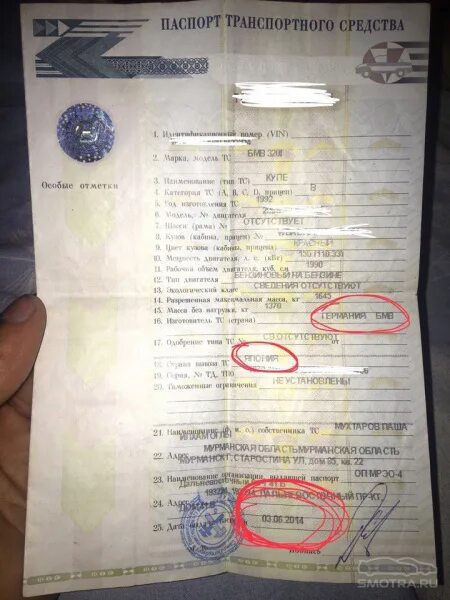 ПАСПОРТ ТРАНСПОРТНОГО СРЕДСТВА
1. Идентификационный номер (VIN)
2. Марка, модель ТС БМВ 320I
Особые отметки
3. Наименование (тип ТС) КУПЕ
4. Категория ТС (A, B, C, D, прицеп) B
5. Год изготовления ТС 1992
6. Модель, № двигателя
7. Шасси (рама) № ОТСУТСТВУЕТ
8. Кузов (кабина, прицеп) №
9. Цвет кузова (кабины, прицепа) КРАСНЫЙ
10. Мощность двигателя, л. с. (кВт) 150 (110.33)
11. Рабочий объем двигателя, куб. см 1990
12. Тип двигателя БЕНЗИНОВЫЙ НА БЕНЗИНЕ
13. Экологический класс СВЕДЕНИЯ ОТСУТСТВУЮТ
14. Разрешенная максимальная масса, кг 1645
15. Масса без нагрузки, кг 1370
16. Изготовитель ТС (страна) ГЕРМАНИЯ БМВ
17. Одобрение типа ТС № от
18. Страна вывоза ТС ЯПОНИЯ
19. Серия, № ТД, ТПО
20. Таможенные ограничения НЕ УСТАНОВЛЕНЫ
21. Наименование (ф. и. о.) собственника ТС МУХТАРОВ ПАША
ИЛХАМ ОГЛЫ
22. Адрес МУРМАНСКАЯ ОБЛАСТЬ МУРМАНСКАЯ ОБЛАСТЬ
МУРМАНСК Г. СТАРОСТИНА УЛ, дом 95, кв. 22
23. Наименование организации, выдавшей паспорт ОП МРЭО-4
24. Адрес
25. Дата выдачи 03.06.2014
Подпись
SMOTRA.RU